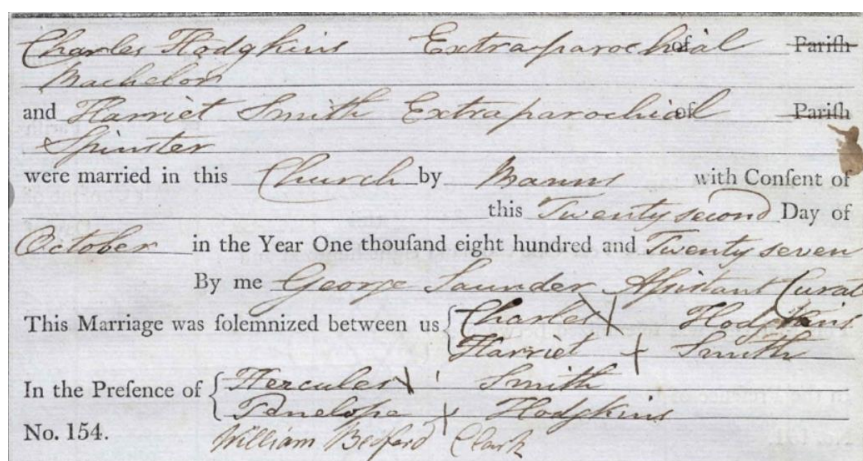 Charles Hodgkins Extraparochial of Parish
Bachelor
and Harriet Smith Extraparochial of Parish
Spinster
were married in this Church by Banns with Consent of
this Twenty second Day of
October in the Year One thousand eight hundred and Twenty seven
By me George Saunder Assistant Curat
This Marriage was solemnized between us { Charles X Hodgkins
Harriet X Smith
In the Presence of { Hercules X Smith
Penelope X Hodgkins
No. 154. William Bedford Clark